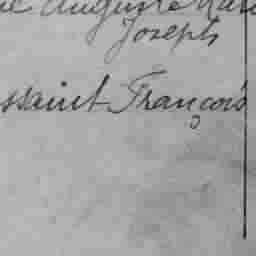 Auguste
Joseph
ssaint François